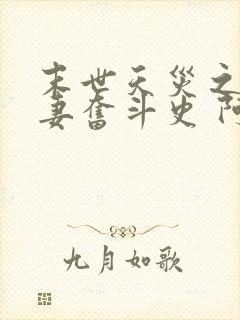 末世天灾之
妻奋斗史 阿
九月如歌